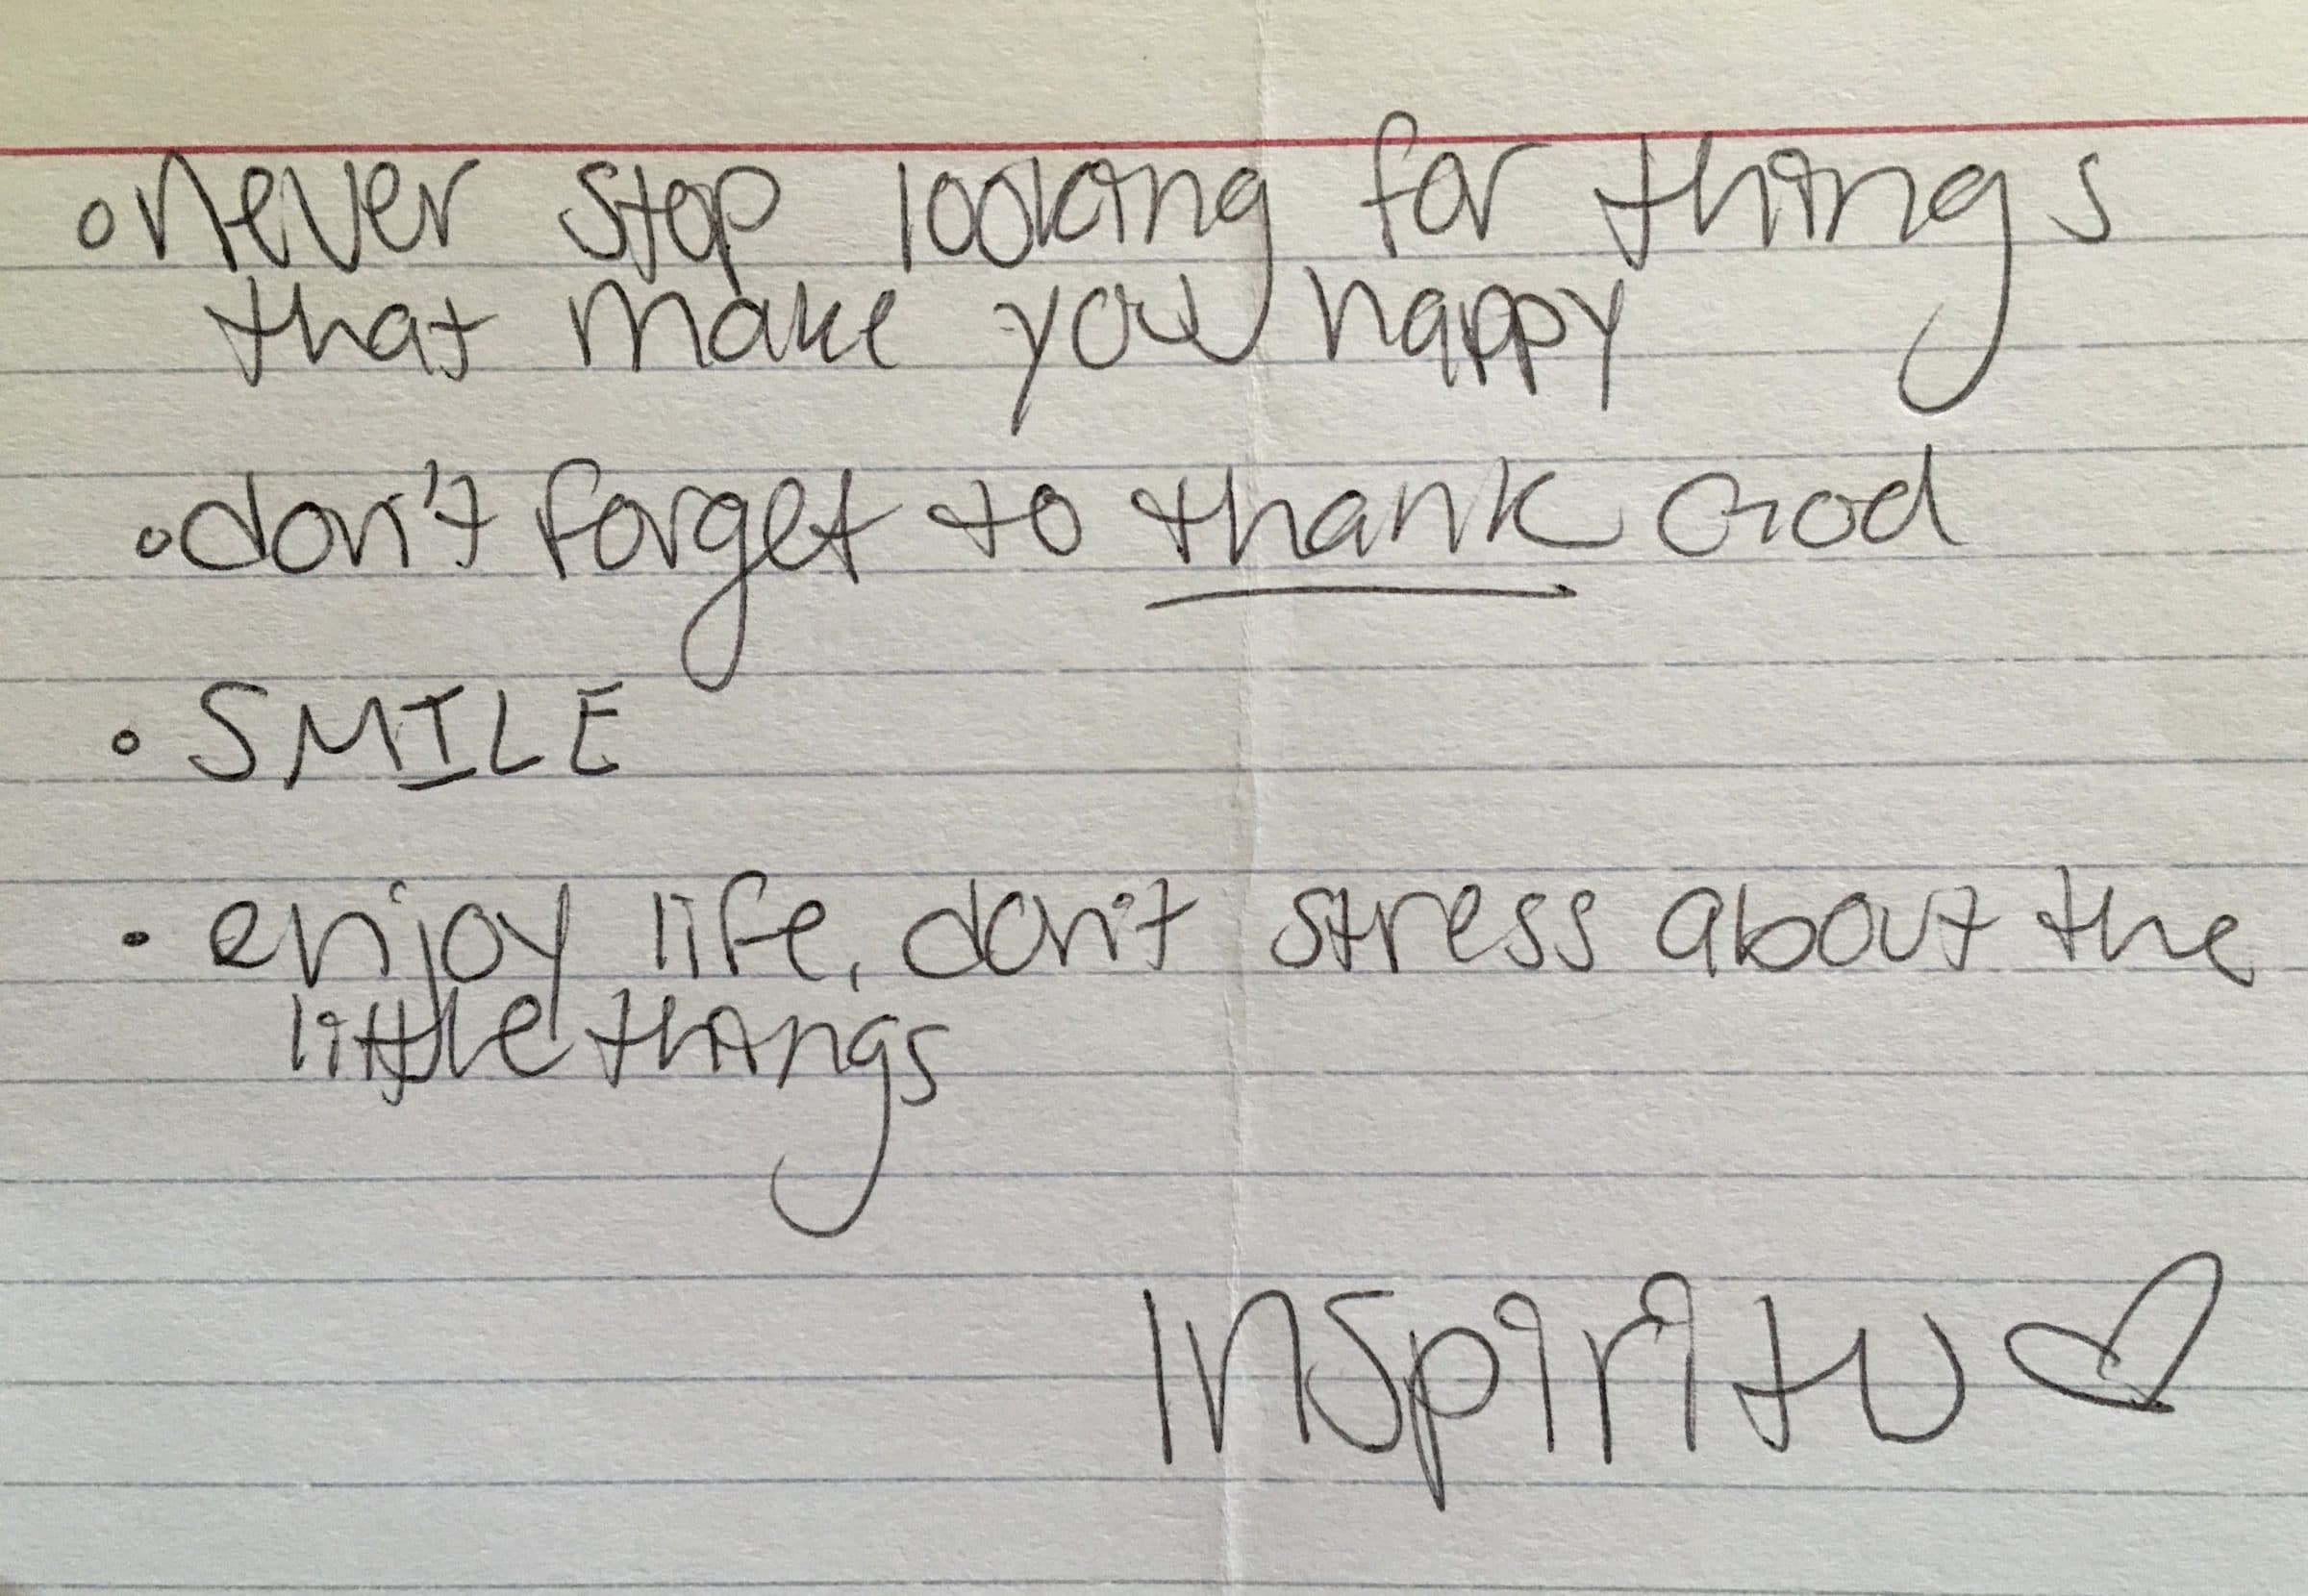 • never stop looking for things
that make you happy
• don't forget to thank God
• SMILE
• enjoy life, don't stress about the
little things
Inspiritu ♡